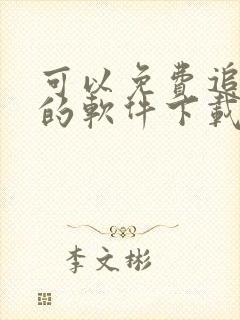 可以免费追
的軟件下載
李文彬